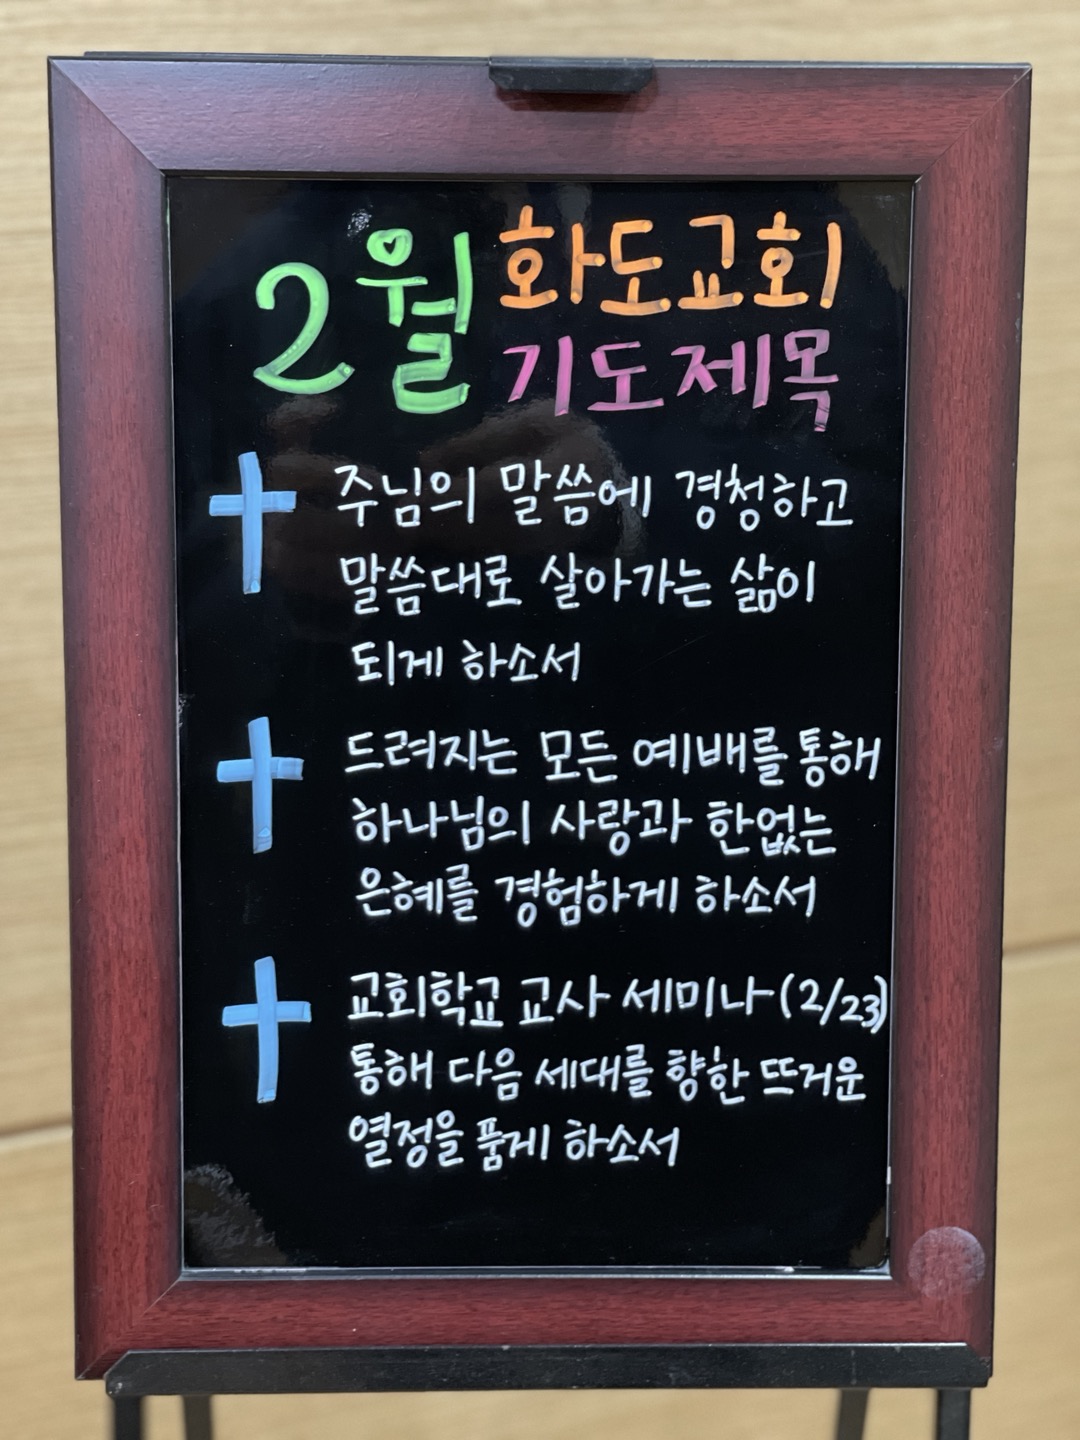 2월 화도교회
기도제목
주님의 말씀에 경청하고
말씀대로 살아가는 삶이
되게 하소서
드려지는 모든 예배를 통해
하나님의 사랑과 한없는
은혜를 경험하게 하소서
교회학교 교사 세미나(2/23)
통해 다음 세대를 향한 뜨거운
열정을 품게 하소서